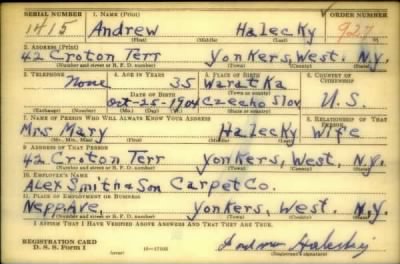 SERIAL NUMBER 1. NAME (Print) ORDER NUMBER
1415 Andrew Halecky 927
(First) (Middle) (Last)
2. ADDRESS (Print)
42 Croton Terr Yonkers, West. N.Y.
(Number and street or R. F. D. number) (Town) (County) (State)
3. TELEPHONE 4. AGE IN YEARS 5. PLACE OF BIRTH 6. COUNTRY OF CITIZENSHIP
None 35 Waratka
DATE OF BIRTH
Oct-25-1904 Czecko Slov U.S.
(Exchange) (Number) (Mo.) (Day) (Yr.) (State or country)
7. NAME OF PERSON WHO WILL ALWAYS KNOW YOUR ADDRESS 8. RELATIONSHIP OF THAT PERSON
Mrs. Mary Halecky Wife
(Mr., Mrs., Miss) (First) (Middle) (Last)
9. ADDRESS OF THAT PERSON
42 Croton Terr Yonkers, West, N.Y.
(Number and street or R. F. D. number) (Town) (County) (State)
10. EMPLOYER'S NAME
Alex Smith & Son Carpet Co.
11. PLACE OF EMPLOYMENT OR BUSINESS
Nepp. Ave, Yonkers, West. N.Y.
(Number and street or R. F. D. number) (Town) (County) (State)
I AFFIRM THAT I HAVE VERIFIED ABOVE ANSWERS AND THAT THEY ARE TRUE.
REGISTRATION CARD
D. S. S. Form 1 (over) 16—17105 Andrew Halecky
(Registrant's signature)